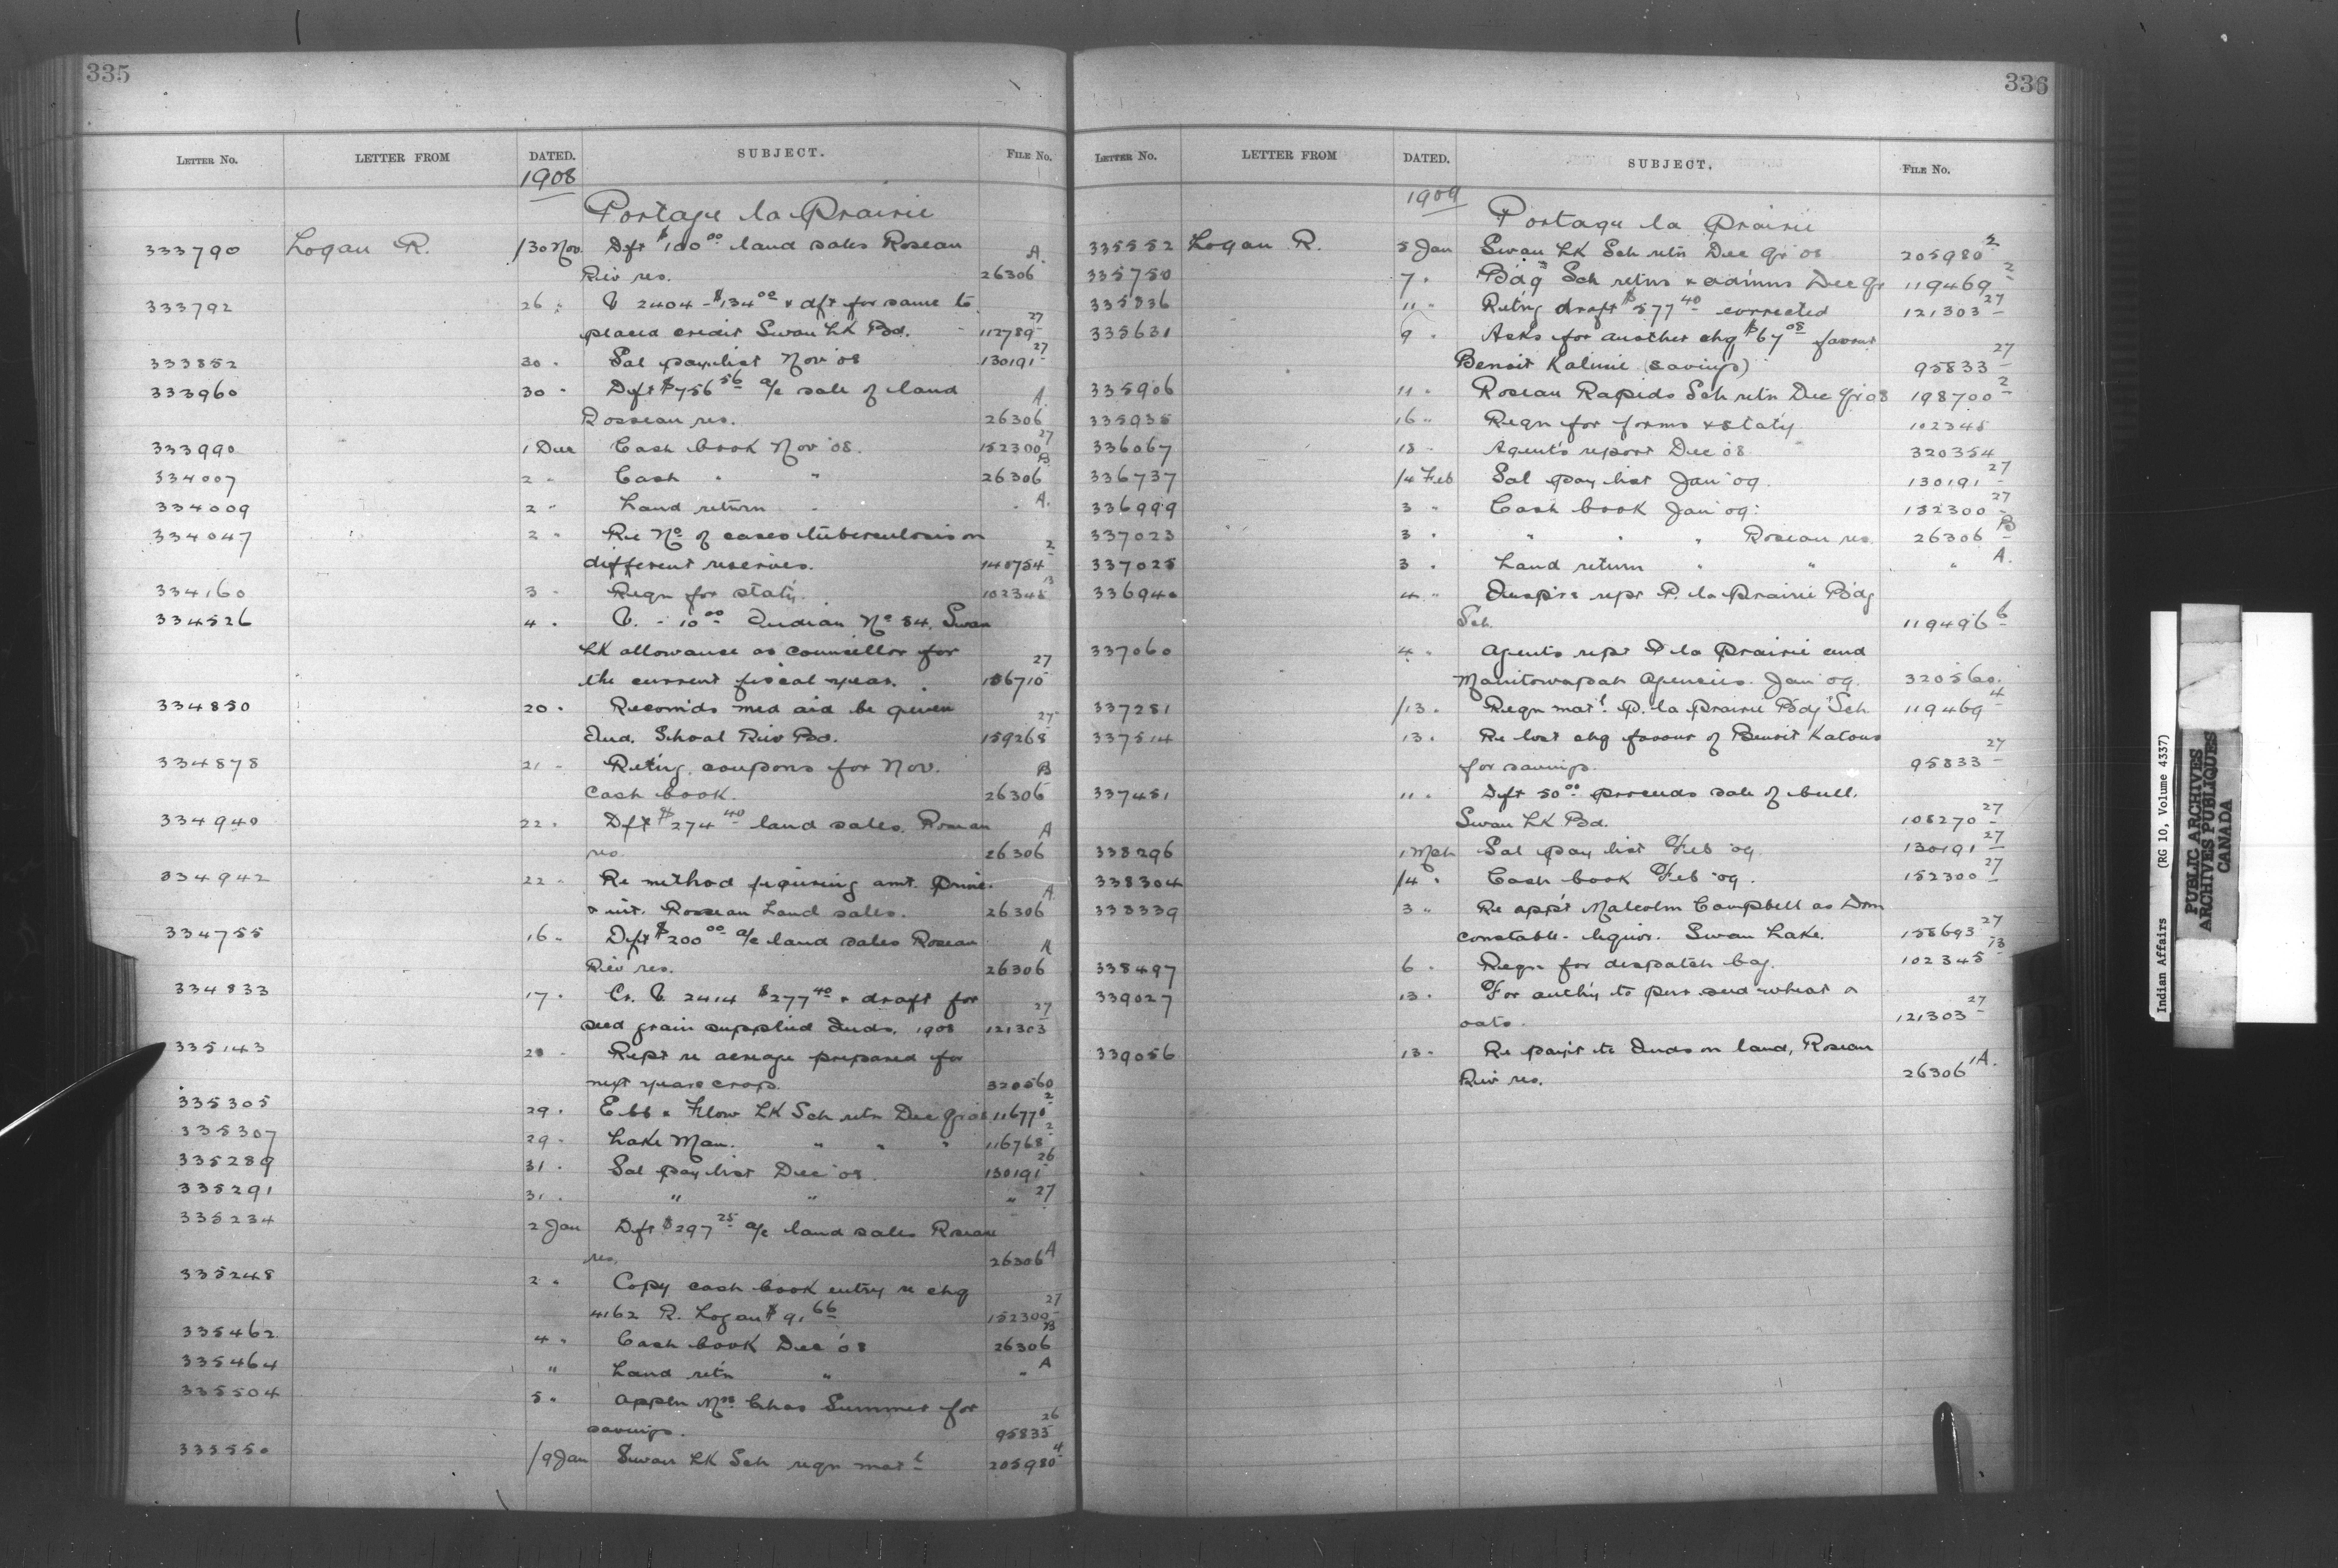 335
LETTER NO. LETTER FROM DATED. SUBJECT. FILE No.
1908
Portage la Prairie
333790 Logan R. /30 Nov. Dft $100.00 land sales Roseau A.
Riv res. 26306
333792 26 " V 2404 - $134.00 & dft for same to 27
placed credit Swan LK Bd. 112789
333852 30 " Sal pay list Nov '08 130191 27
333960 30 " Dft $756.56 a/c sale of land A.
Rosseau res. 26306
333990 1 Dec Cash book Nov '08. 152300 27
334007 2 " Cash " " 26306 B
334009 2 " Land return " " A.
334047 2 " Re No of cases tuberculosis on 2
different reserves. 140754
334160 3 " Reqn for stat'y. 102345 13
334526 4 " V. - 10.00 Indian No 84, Swan
LK allowance as councillor for 27
the current fiscal year. 156710
334850 20 " Recom'ds med aid be given 27
Ind. Shoal Riv Bd. 159268
334878 21 " Ret'ng. coupons for Nov. B
cash book. 26306
334940 22 " Dft $274.40 land sales. Roseau A
res. 26306
334942 22 " Re method figuring amt. princ. A
& int. Rosseau Land sales. 26306
334755 16 " Dft $200.00 a/c land sales Roseau A
Riv res. 26306
334833 17 " Cr. V 2414 $277.40 & draft for 27
seed grain supplied Inds. 1908 121303
335143 28 " Rept re acreage prepared for
next years crop. 320560
335305 29 " Ebb & Flow LK Sch retn Dec qr 08 116770 2
335307 29 " Lake Man. " " " 116768 2
335289 31 " Sal pay list Dec '08. 130191 26
335291 31 " " " " 27
335234 2 Jan Dft $297.25 a/c land sales Roseau
res. 26306 A
335248 2 " Copy cash book entry re chq
4162 R. Logan $91.66 152300 27
335462 4 " Cash book Dec '08 26306 B
335464 " Land ret'n " " A
335504 5 " Appln Mrs. Chas Summer for
savings. 95833 26
335550 /9 Jan Swan LK Sch reqn mat'l 205980 4
336
LETTER NO. LETTER FROM DATED. SUBJECT. FILE No.
1909
Portage la Prairie
335552 Logan R. 5 Jan Swan LK Sch retn Dec qr 08 205980 2
335750 7 " Bdg Sch retns & adm'ns Dec qr 119469 2
335836 11 " Ret'ng draft $577.40 corrected 121303 27
335631 9 " Asks for another chq $67.08 favour
Benoit (savings) 95833 27
335906 11 " Roseau Rapids Sch retn Dec qr 08 198700 2
335935 16 " Reqn for forms & stat'y 102345
336067 18 " Agent's report Dec '08 320354
336737 /4 Feb Sal pay list Jan '09. 130191 27
336999 3 " Cash book Jan '09. 152300 27
337023 3 " " " " Roseau res. 26306 B
337025 3 " Land return " " " A.
336940 4 " Inspr's rept P. la Prairie Bdg
Sch. 119496 6
337060 4 " Agents rept P la Prairie and
Manitowapah Agencies. Jan '09. 320560.
337281 /13 " Reqn mat'l. P. la Prairie Bdg Sch 119469 4
337514 13 " Re lost chq favour of Benoit
for savings. 95833 27
337451 11 " Dft 50.00 proceeds sale of bull.
Swan LK Bd. 108270 27
338296 1 Mch Sal pay list Feb '09 130191 27
338304 /4 " Cash book Feb '09. 152300 27
338339 3 " Re app't Malcolm Campbell as Dom
constable - liquor. Swan Lake. 158693 27
338497 6 " Reqn for despatch bag. 102345 13
339027 13 " For auth'y to pur. seed wheat &
oats. 121303 27
339056 13 " Re pay't to Inds on land, Roseau
Riv res. 26306 1A.
Indian Affairs (RG 10, Volume 4337)
PUBLIC ARCHIVES
ARCHIVES PUBLIQUES
CANADA